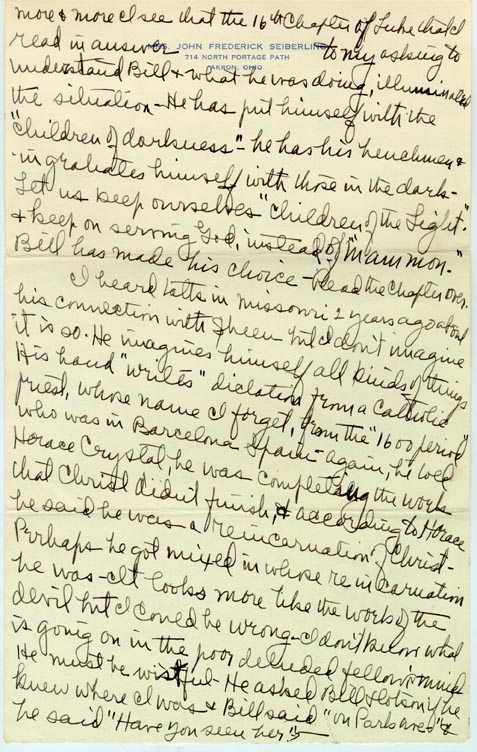 more & more I see that the 16th Chapter of Luke that I
read in answer to my asking to
MRS. JOHN FREDERICK SEIBERLING
714 NORTH PORTAGE PATH
AKRON, OHIO
understand Bill & what he was doing, illuminated
the situation - He has put himself with the
"children of darkness" - he has his henchmen &
ingratiates himself with those in the dark -
Let us keep ourselves "children of the Light"
& keep on serving God, instead of "mammon."
Bill has made his choice - Read the chapter over.
I heard in Missouri 2 years ago about
his connection with Sheen but I don't imagine
it is so. He imagines himself all kinds of things
His hand "writes" dictation from a Catholic
priest, whose name I forget, from the "1600 period"
who was in Barcelona Spain - again, he told
Horace Crystal, he was completing the work
that Christ didn't finish, & according to Horace
he said he was a reincarnation of Christ -
Perhaps he got mixed in whose reincarnation
he was - It looks more like the works of the
devil but I could be wrong - I don't know what
is going on in the poor deluded fellow's mind
He must be wistful - He asked Bill if he
knew where I was & Bill said "on Park Ave" &
he said "Have you seen her"?